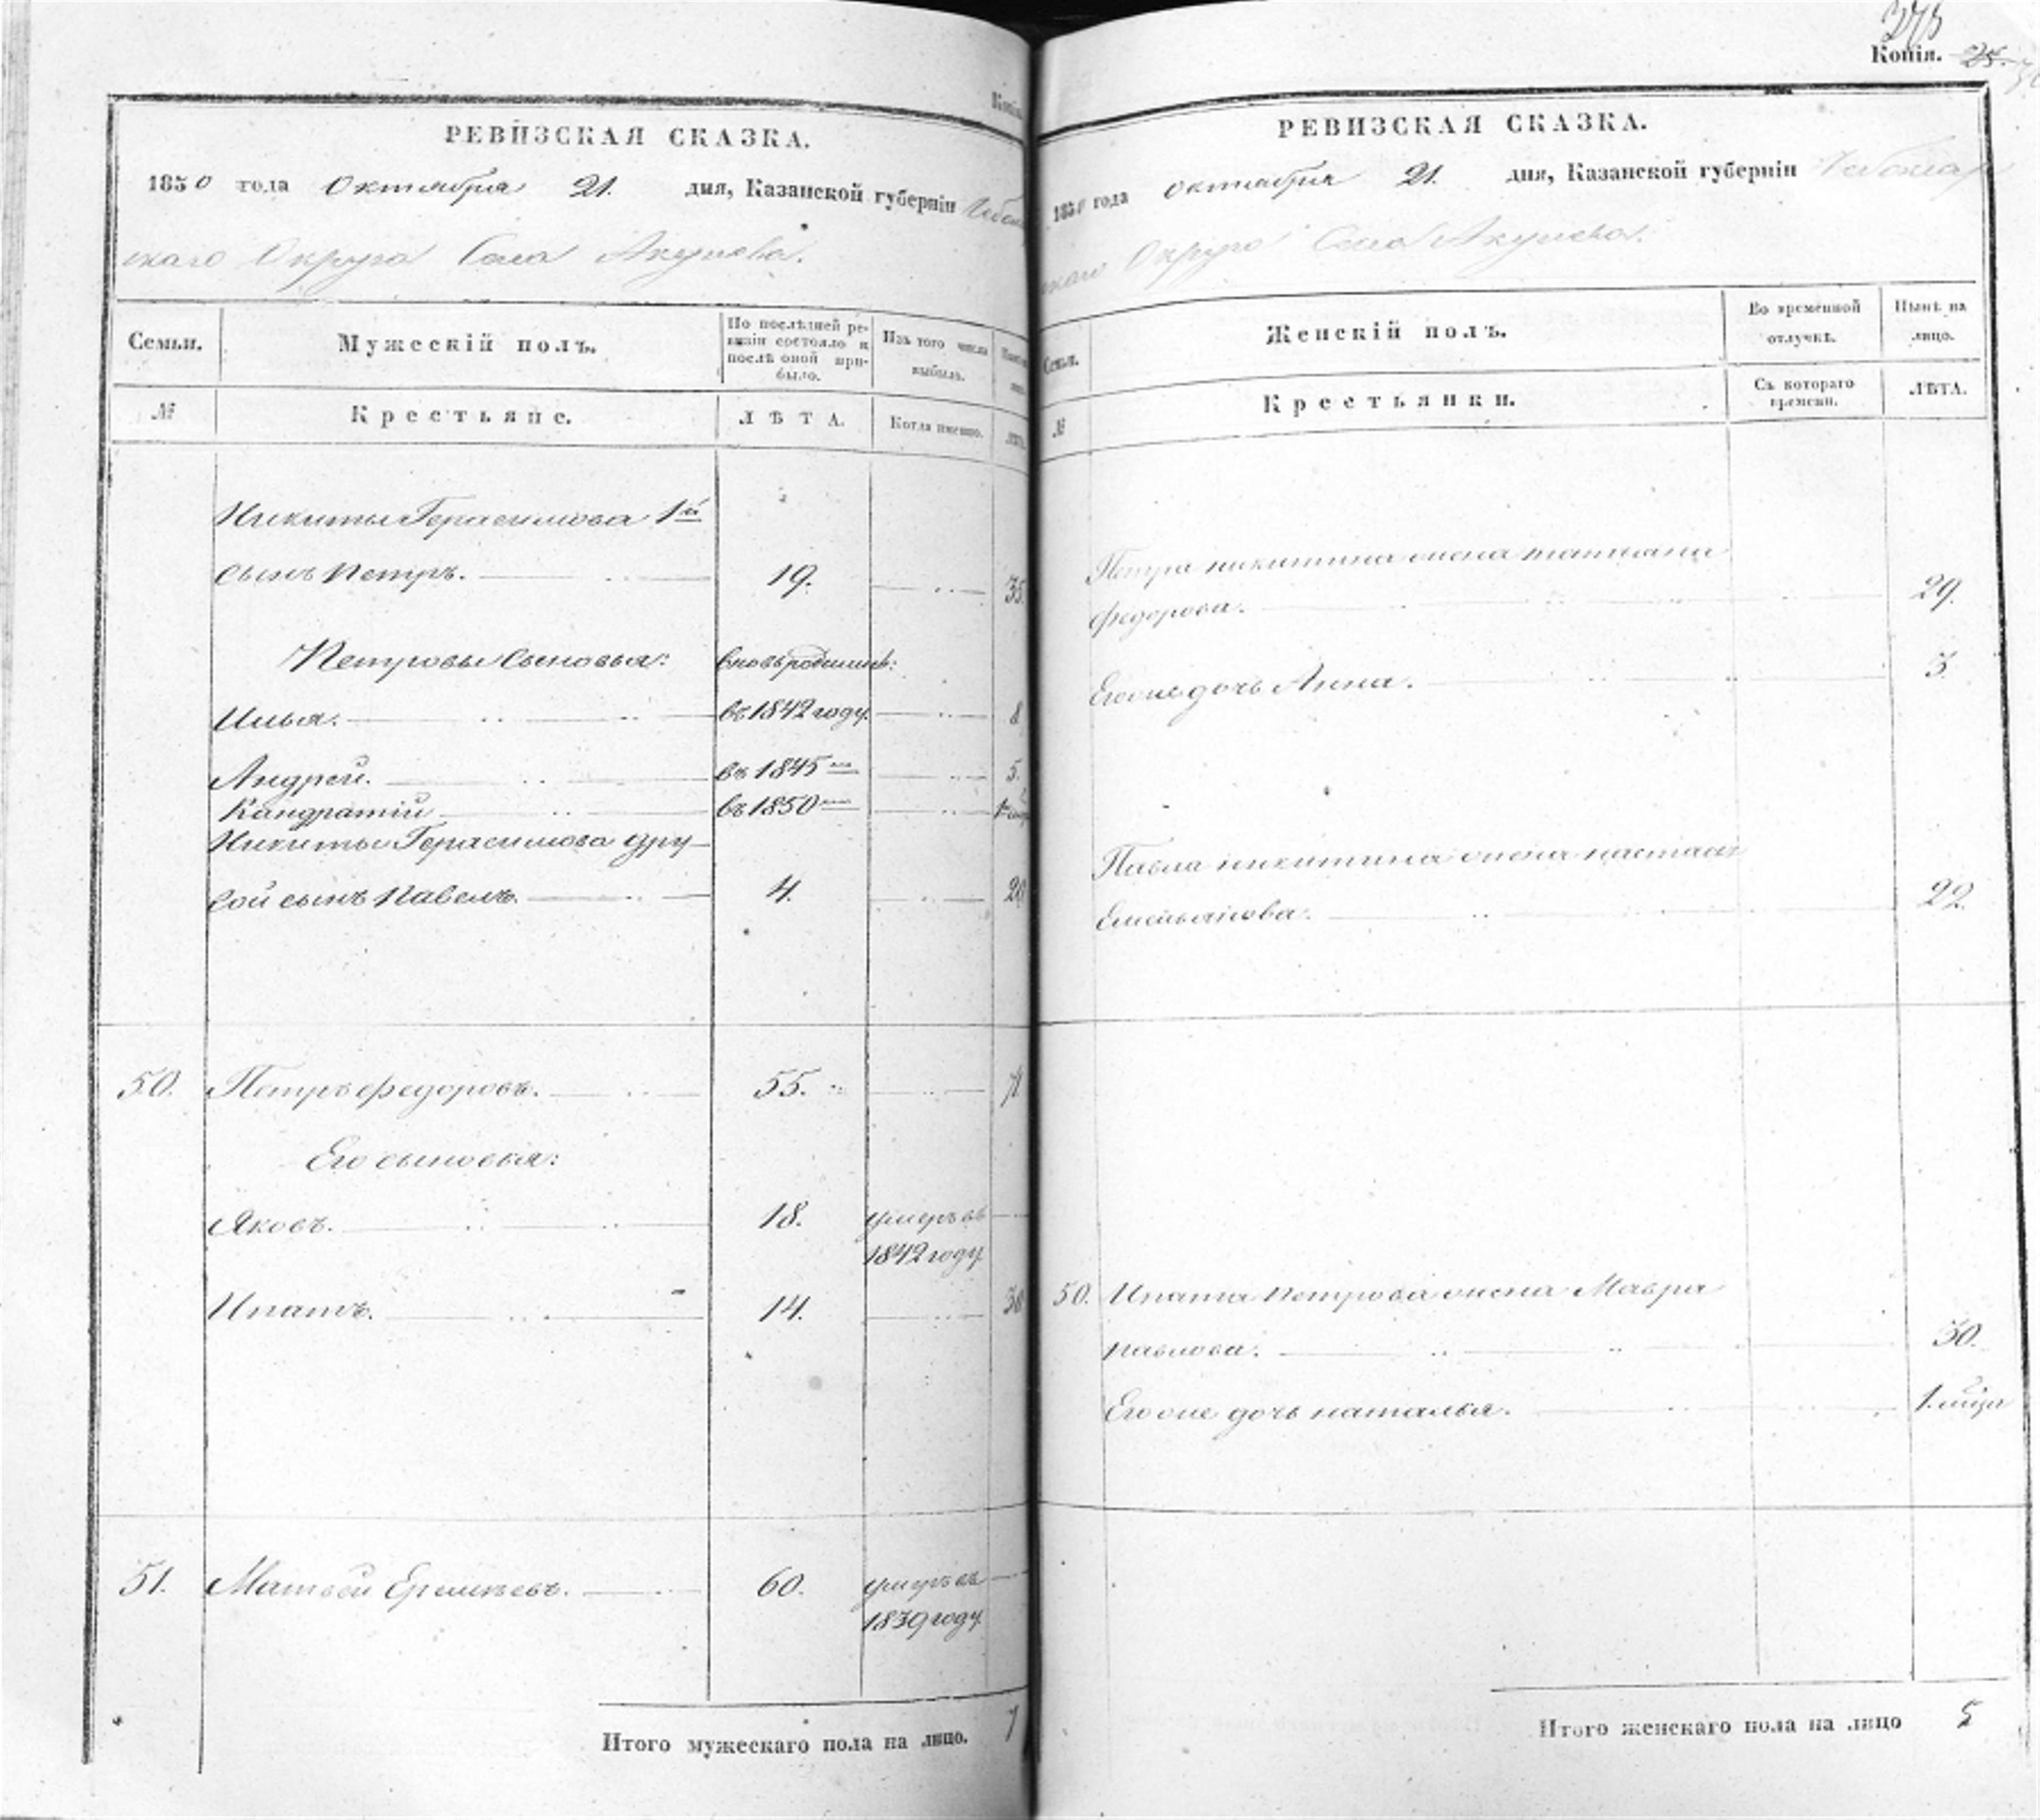 Копія.
РЕВИЗСКАЯ СКАЗКА.
1850 года Октября 21. дня, Казанской губерніи
скаго Округа Села Акулева.
Семьи.
Мужескій полъ.
По послѣдней ре-
визіи состояло и
послѣ оной при-
было.
Изъ того числа
выбыло.
№
Крестьяне.
ЛѢТА.
Когда именно.
Никиты Герасимова 1й
сынъ Петръ. 19. 35
Петровы сыновья: вновь рожденны:
Илья. въ 1842 году. 8
Андрей. въ 1845 5.
Кандратій въ 1850
Никиты Герасимова дру-
гой сынъ Павелъ. 4. 20
50. Петръ Федоровъ. 55. 71
Его сыновья:
Яковъ. 18. умеръ въ
1842 году
Ипатъ. 14. 30
51. Матвей Еремѣевъ. 60. умеръ въ
1839 году.
Итого мужескаго пола на лицо. 7
Копія. 25.
РЕВИЗСКАЯ СКАЗКА.
1850 года октября 21. дня, Казанской губерніи Чебоксар
скаго Округа Села Акулева.
Семьи.
Женскій полъ.
Во временной
отлучкѣ.
Нынѣ на
лицо.
№
Крестьянки.
Съ котораго
времени.
ЛѢТА.
Петра никитина жена татиана
федорова. 29.
Его же дочь Анна. 3
Павла никитина жена настасья
Емельянова. 22.
50. Ипата петрова жена Мавра
павлова. 30.
Его же дочь наталья. 1.
Итого женскаго пола на лицо 5